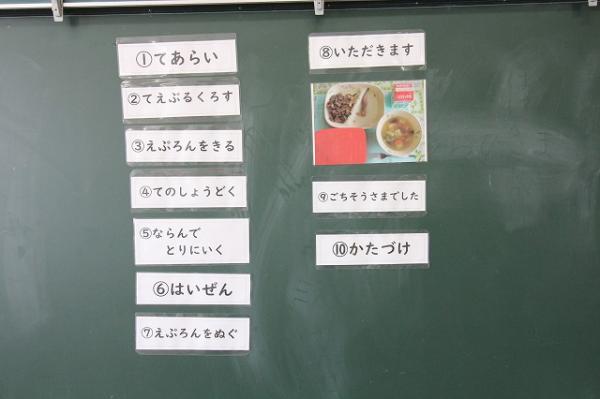 ①てあらい
②てえぶるくろす
③えぷろんをきる
④てのしょうどく
⑤ならんで
とりにいく
⑥はいぜん
⑦えぷろんをぬぐ
⑧いただきます
⑨ごちそうさまでした
⑩かたづけ